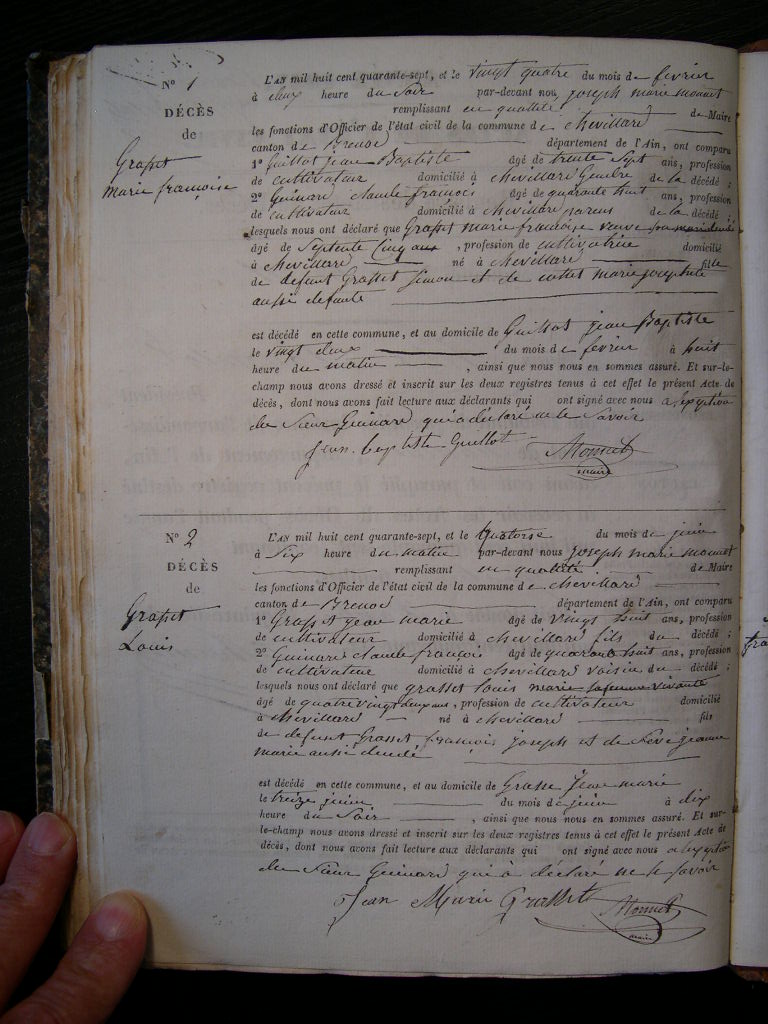 N° 1
DÉCÈS
de
Grasset
marie françoise
L'AN mil huit cent quarante-sept, et le vingt quatre du mois de fevrier
à deux heure du Soir par-devant nou, joseph marie monnet
remplissant en qualité de Maire
les fonctions d'Officier de l'état civil de la commune de chevillard
canton de Brenod département de l'Ain, ont comparu
1° Guillot jean Baptiste âgé de trente Sept ans, profession
de cultivateur domicilié à chevillard Gendre de la décédé ;
2° Guinard claude françois âgé de quarante huit ans, profession
de cultivateur domicilié à chevillard de la décédé ;
lesquels nous ont déclaré que Grasset marie françoise veuve
âgé de Septente Cinq ans , profession de cultivatrice domicilié
à chevillard né à chevillard fille
de defunt Grasset Simon et de marie josephte
aussi defunte
est décédé en cette commune, et au domicile de Guillot jean Baptiste
le vingt deux du mois de fevrier à huit
heure du matin , ainsi que nous nous en sommes assuré. Et sur-le-
champ nous avons dressé et inscrit sur les deux registres tenus à cet effet le présent Acte de
décès, dont nous avons fait lecture aux déclarants qui ont signé avec nous a lexeption
du Sieur Guinard qui a déclaré ne le Savoir
Jean baptiste Guillot Monnet
maire
N° 2
DÉCÈS
de
Grasset
Louis
L'AN mil huit cent quarante-sept, et le quatorse du mois de juin
à Six heure du matin par-devant nous joseph marie monnet
remplissant en qualité de Maire
les fonctions d'Officier de l'état civil de la commune de chevillard
canton de Brenod département de l'Ain, ont comparu
1° Grasset jean marie âgé de vingt huit ans, profession
de cultivateur domicilié à chevillard fils du décédé ;
2° Guinard claude françois âgé de quarante huit ans, profession
de cultivateur domicilié à chevillard voisin du décédé ;
lesquels nous ont déclaré que grasset louis marie sa femme vivante
âgé de quatre vingt deux ans, profession de cultivateur domicilié
à chevillard né à chevillard fils
de defunt Grasset françois joseph et de jeanne
marie aussi
est décédé en cette commune, et au domicile de Grasse Jean marie
le treize juin du mois de juin à dix
heure du Soir , ainsi que nous nous en sommes assuré. Et sur-
le-champ nous avons dressé et inscrit sur les deux registres tenus à cet effet le présent Acte de
décès, dont nous avons fait lecture aux déclarants qui ont signé avec nous a lexeption
du Sieur Guinard qui à déclaré ne le savoir
Jean Marie Grasset Monnet
maire